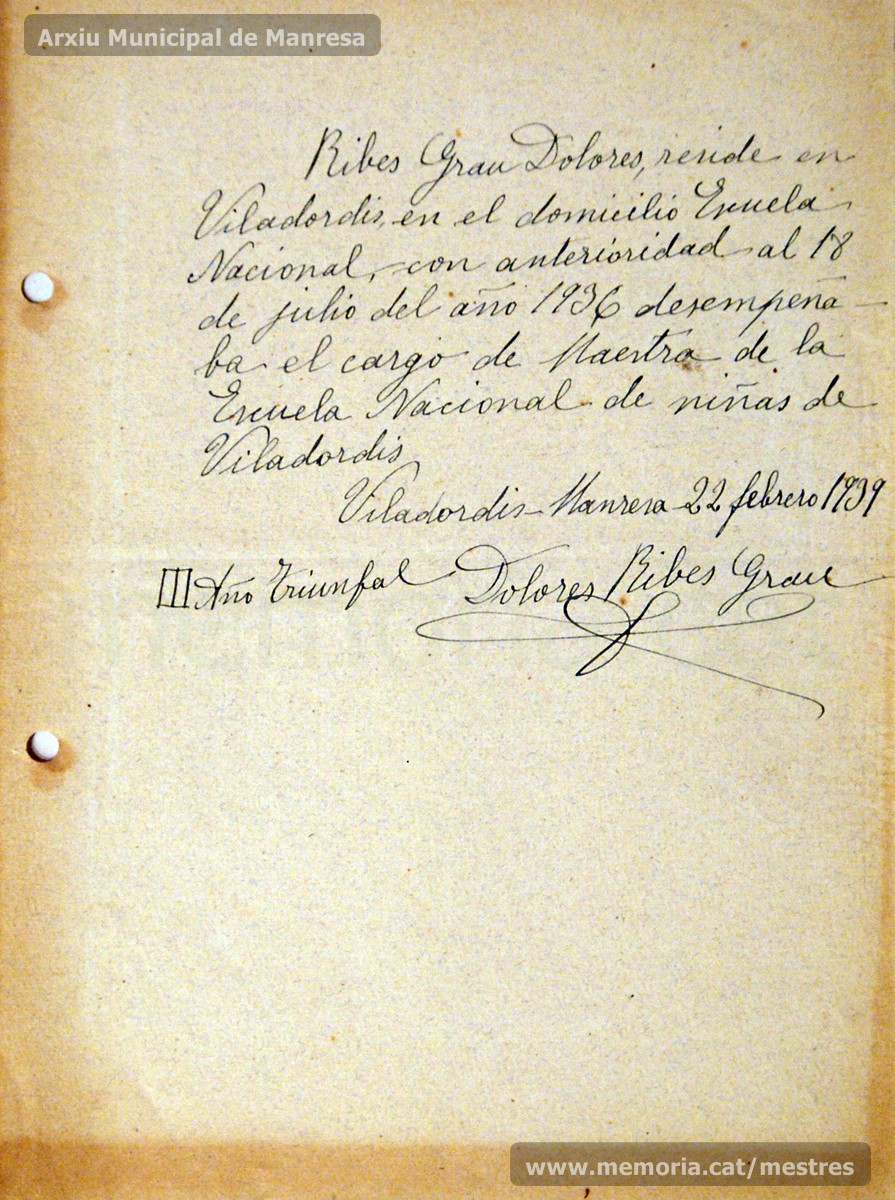 Arxiu Municipal de Manresa
Ribes Grau Dolores, reside en
Viladordis, en el domicilio Escuela
Nacional, con anterioridad al 18
de julio del año 1936 desempeña-
ba el cargo de Maestra de la
Escuela Nacional de niñas de
Viladordis
Viladordis-Manresa-22 febrero 1939
III Año Triunfal Dolores Ribes Grau
www.memoria.cat/mestres